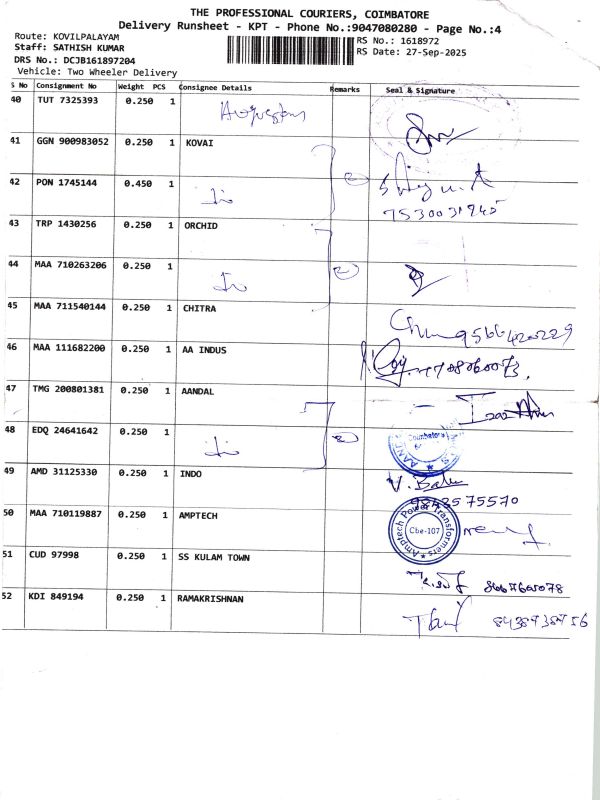 THE PROFESSIONAL COURIERS, COIMBATORE
Delivery Runsheet - KPT - Phone No.:9047080280 - Page No.:4
Route: KOVILPALAYAM
RS No.: 1618972
Staff: SATHISH KUMAR
RS Date: 27-Sep-2025
DRS No.: DCJB161897204
Vehicle: Two Wheeler Delivery
S No Consignment No Weight PCS Consignee Details Remarks Seal & Signature
40 TUT 7325393 0.250 1
41 GGN 900983052 0.250 1 KOVAI
42 PON 1745144 0.450 1
7530031945
43 TRP 1430256 0.250 1 ORCHID
44 MAA 710263206 0.250 1
45 MAA 711540144 0.250 1 CHITRA
9566420229
46 MAA 111682200 0.250 1 AA INDUS
47 TMG 200801381 0.250 1 AANDAL
48 EDQ 24641642 0.250 1
Coimbatore
49 AMD 31125330 0.250 1 INDO
V. Balu
50 MAA 710119887 0.250 1 AMPTECH
Amptech Power Transformers
Cbe-107
51 CUD 97998 0.250 1 SS KULAM TOWN
8667660078
52 KDI 849194 0.250 1 RAMAKRISHNAN
8438738756